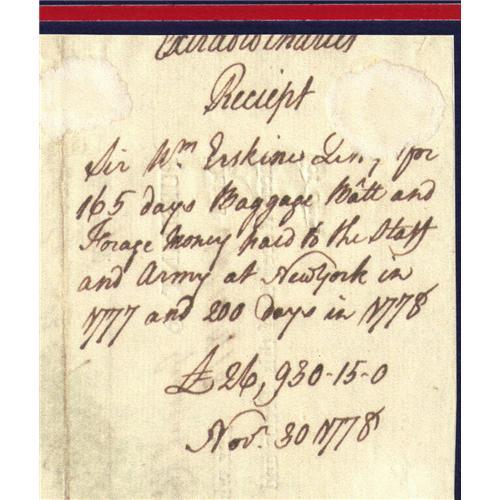 Extraordinaries
Reciept
Sir Wm. Erskines for
165 days Baggage Bâtt and
Forage Money paid to the Staff
and Army at NewYork in
1777 and 200 days in 1778
£26,930-15-0
Novr. 30 1778